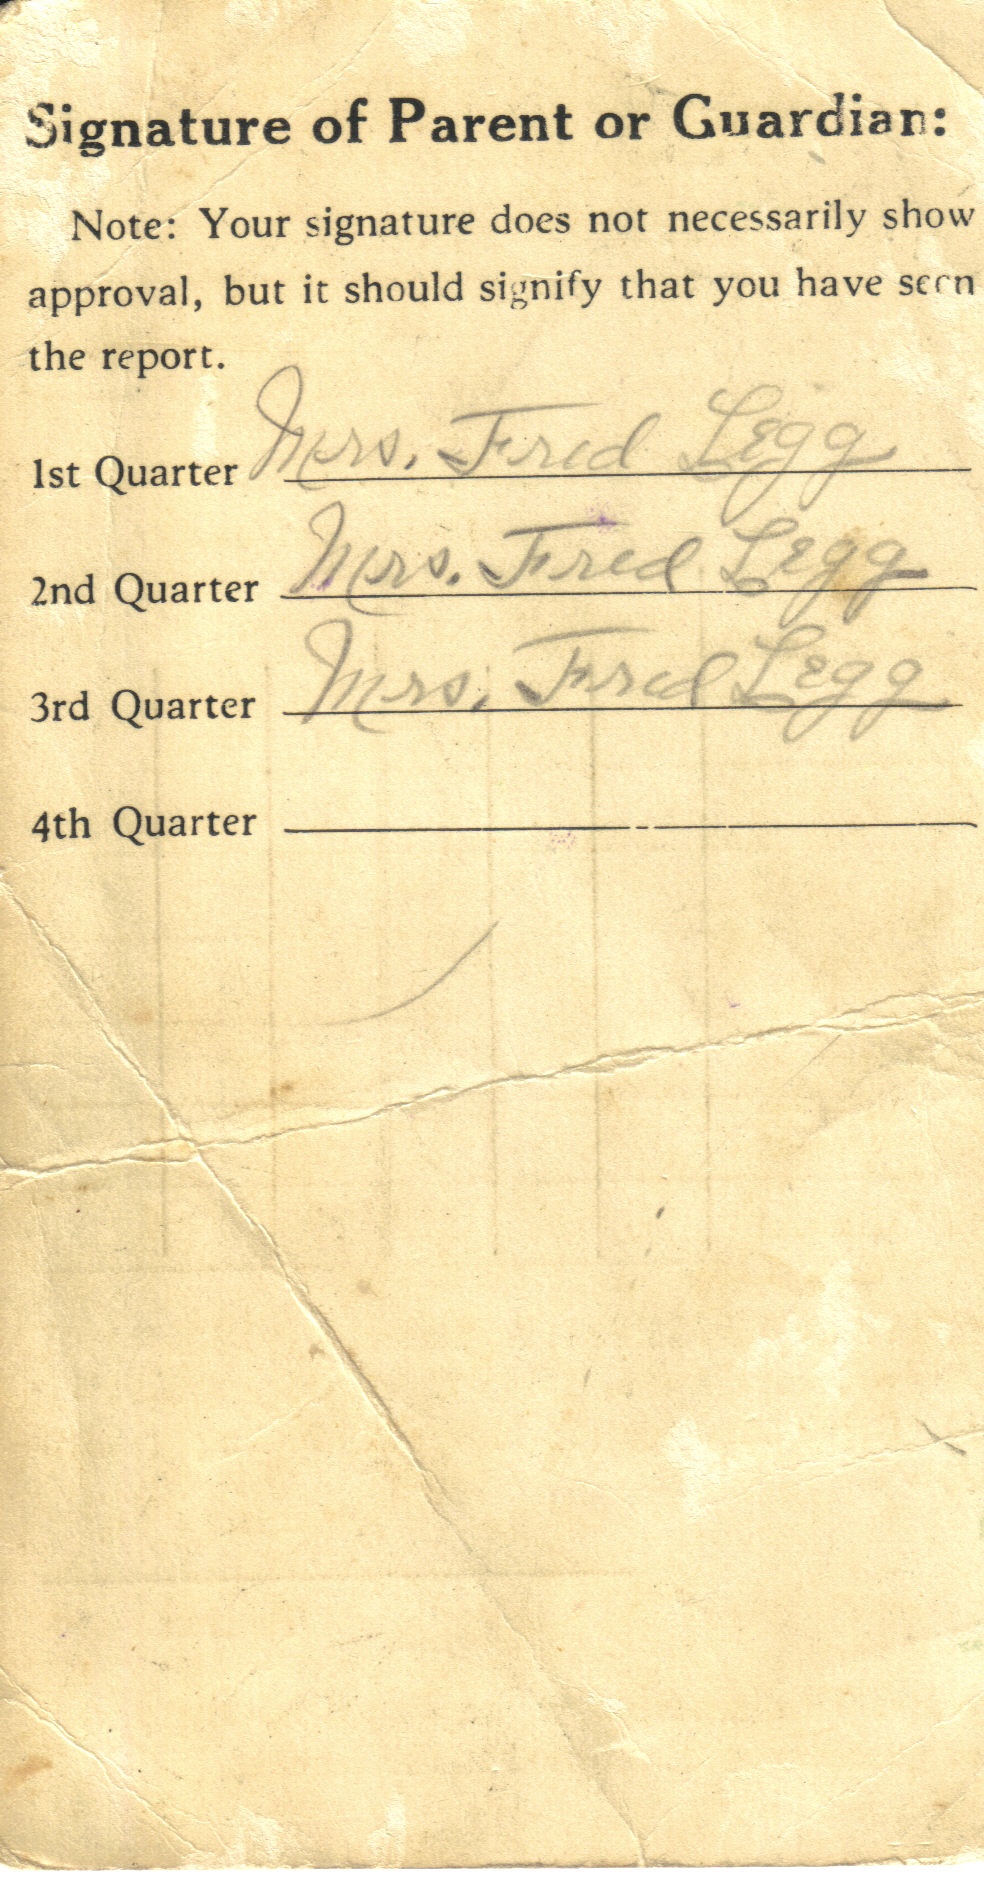 Signature of Parent or Guardian:
Note: Your signature does not necessarily show
approval, but it should signify that you have seen
the report.
1st Quarter Mrs. Fred Legg
2nd Quarter Mrs. Fred Legg
3rd Quarter Mrs. Fred Legg
4th Quarter